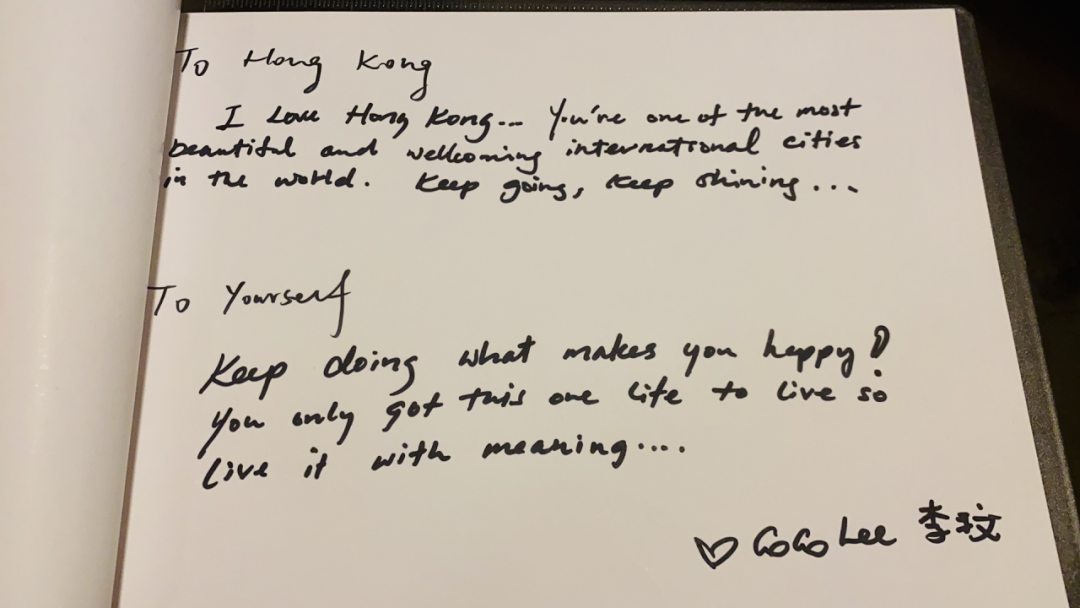 To Hong Kong
I Love Hong Kong... You're one of the most
beautiful and wellcoming international cities
in the world. Keep going, Keep shining...
To Yourself
Keep doing what makes you happy!
You only got this one life to live so
live it with meaning....
♡ CoCo Lee 李玟